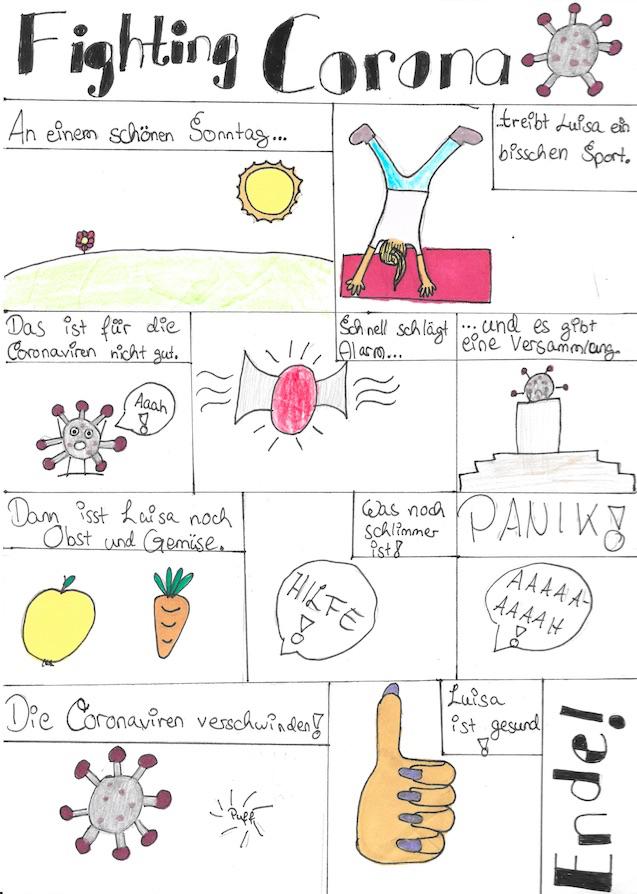 Fighting Corona
An einem schönen Sonntag...
...treibt Luisa ein
bisschen Sport.
Das ist für die
Coronaviren nicht gut.
Aaah
!
Schnell schlägt
Alarm...
...und es gibt
eine Versammlung.
Dann isst Luisa noch
Obst und Gemüse.
HILFE
!
Was noch
schlimmer
ist!
PANIK!
AAAAA-
AAAAH
!
Die Coronaviren verschwinden!
Puff
Luisa
ist gesund
!
Ende!